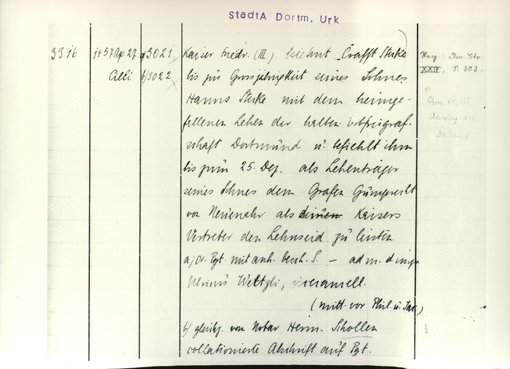 StadtA Dortm. Urk
3316
1457 Apr. 27. a) 3021
Cilli b) 3022
Kaiser Friedr. (III.) belehnt Crafft Stecke
bis zur Grossjährigkeit seines Sohnes
Hanns Stecke mit dem heimge-
fallenen Lehen der halben
schaft Dortmund u. befiehlt ihm
bis zum 25. Dez. als Lehenträger
seines Sohnes dem Grafen Gumprecht
von Neuenahr als Kaisers
Vertreter den Lehnseid zu leisten
a) Or. Pgt. mit anh. besch. S. – ad m. d. imp.
(mitt. vor Phil. u. Jac.)
b) gleichz. von Notar Herm. Schollen
collationierte Abschrift auf Pgt.
XXIV, S. 203.